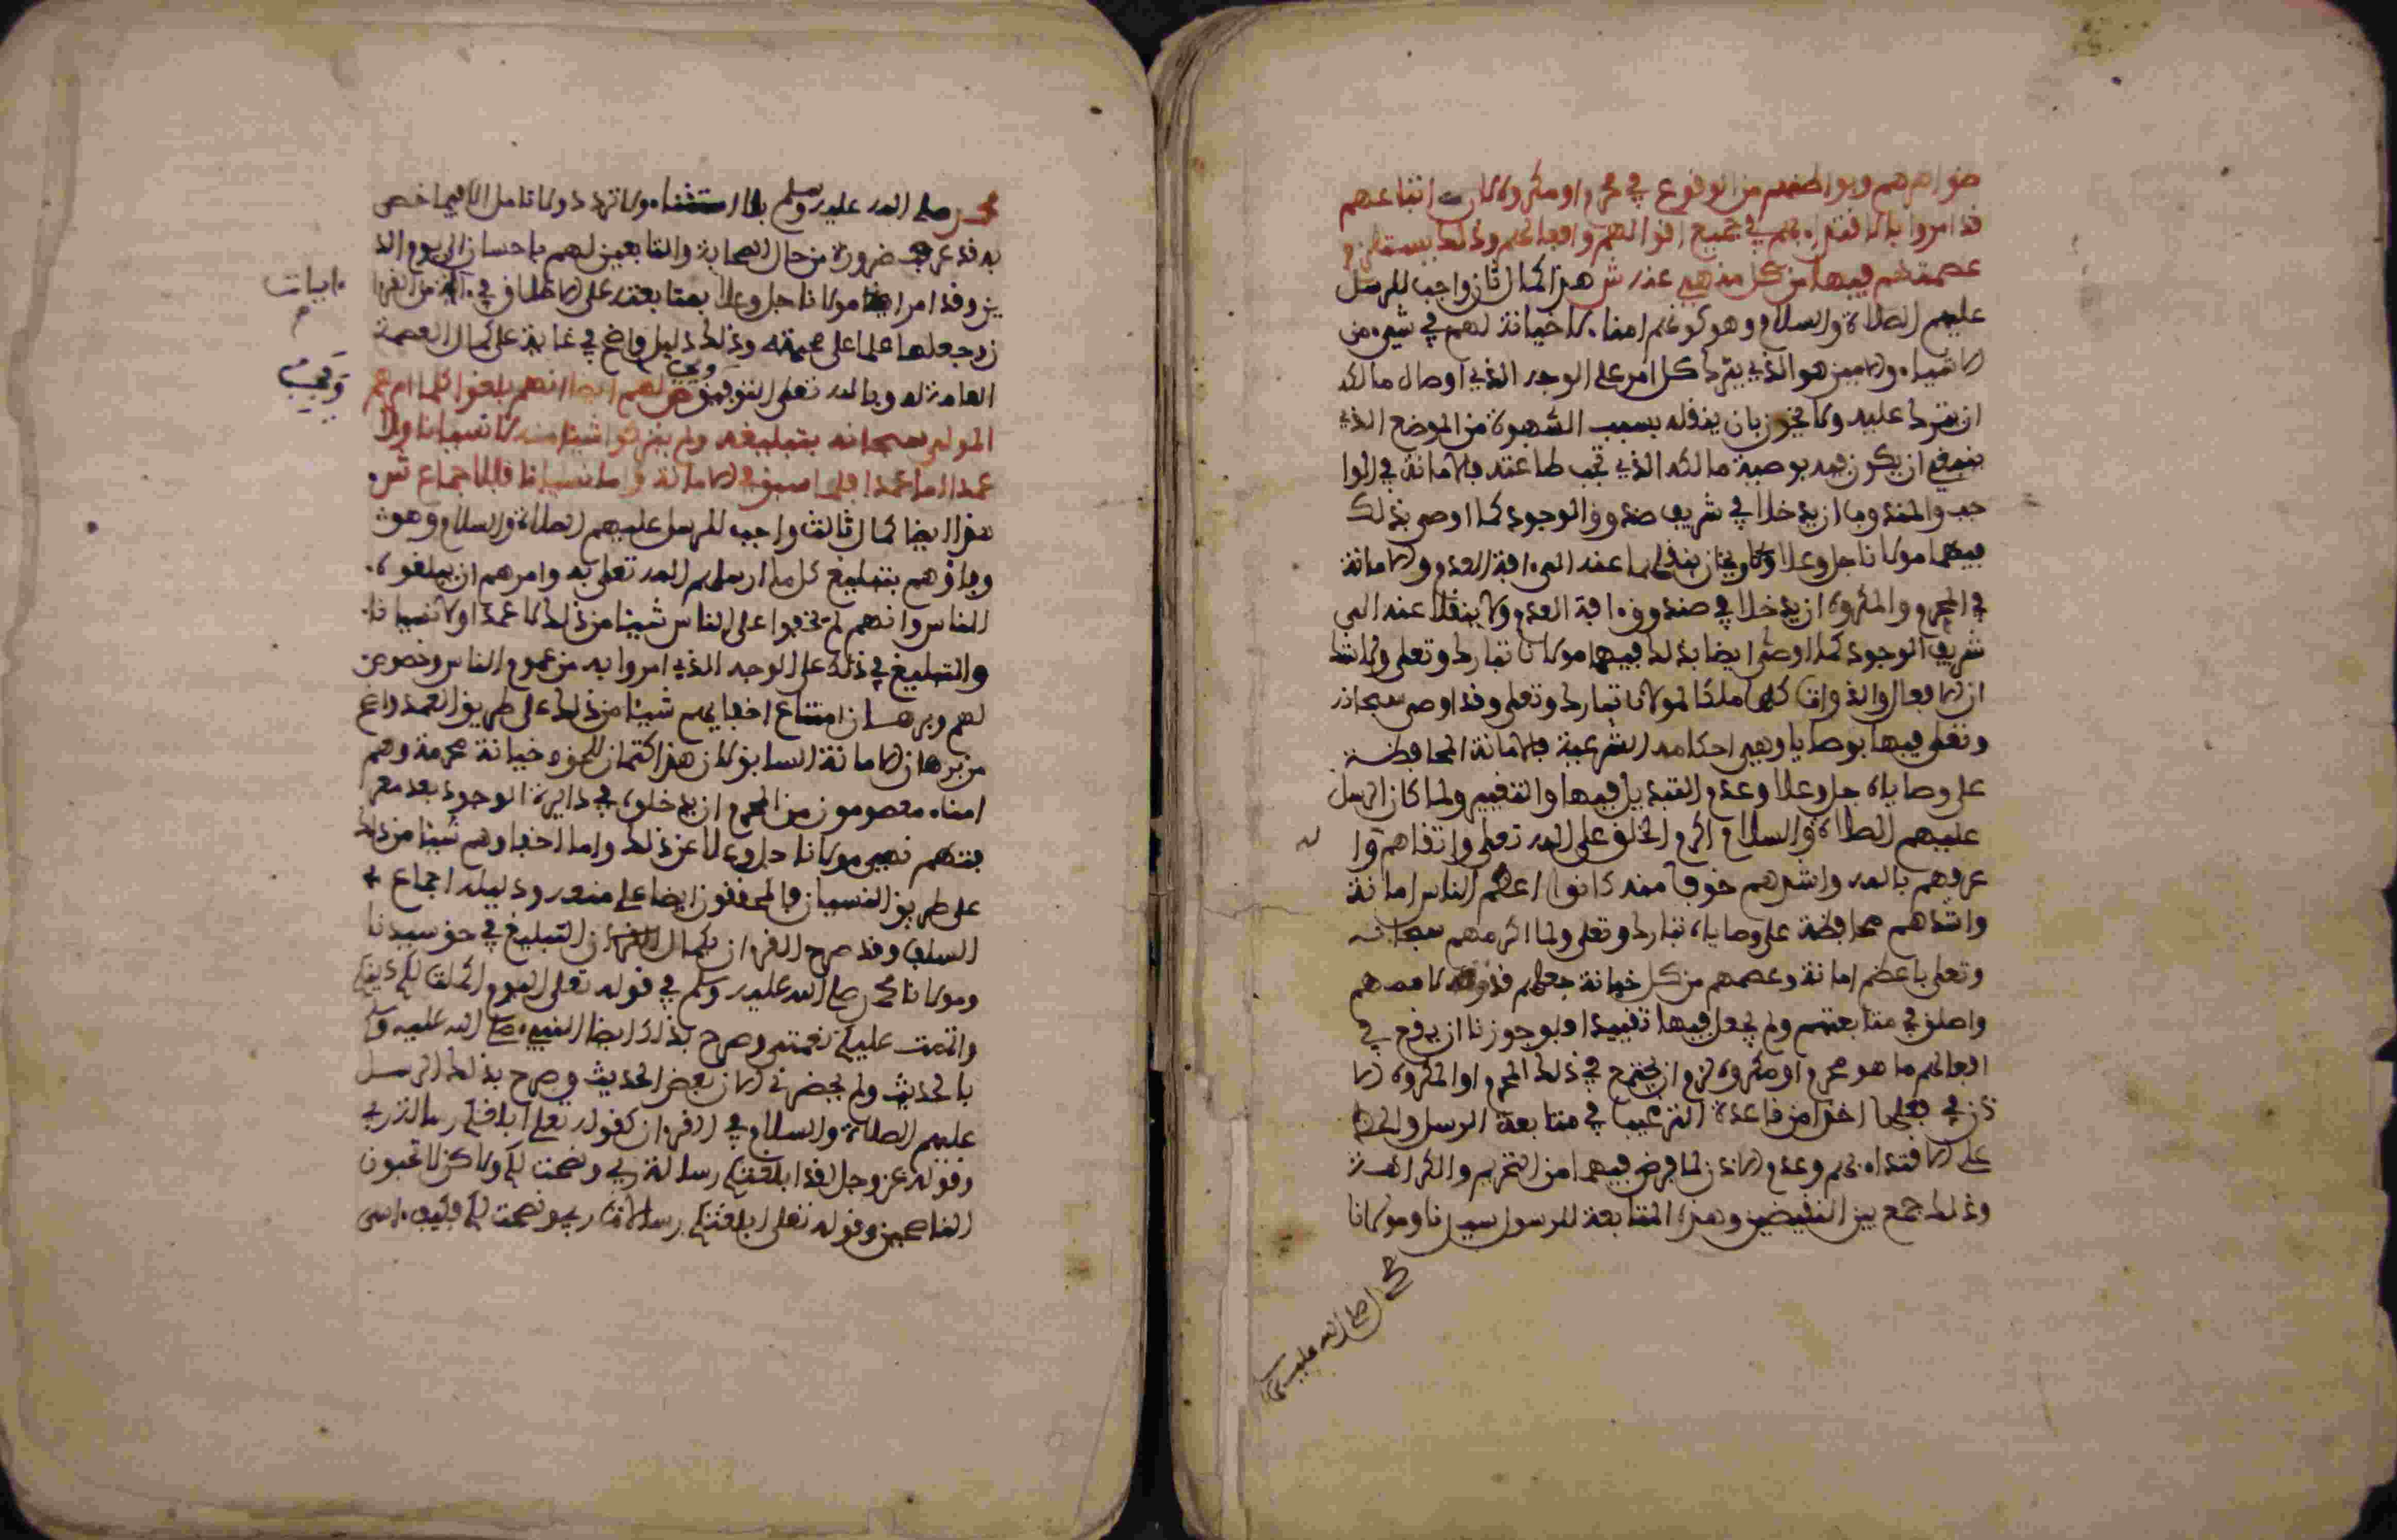 ضواهرهم وبواطنهم من الوقوع في محرم او مكروه كان اتباعهم
قد امروا بالاقتداء بهم في جميع اقوالهم وافعالهم وذلك يستلزم
عصمتهم فيها من كل منهي عنه ش هذا كمال ثان واجب للرسل
عليهم الصلاة والسلام وهو كونهم امناء لا خيانة لهم في شيء من
الاشياء والامين هو الذي يترك كل امر على الوجه الذي اوصى مالكه
ان يترك عليه ولا يخون بان ينقله بسبب الشهوة من الموضع الذي
ينبغي ان يكون فيه بوصية مالكه الذي تجب طاعته فالامانة في الوا
جب والمندوب ان يدخلا في شريف صندوق الوجود كما اوصى بذلك
فيهما مولانا جل وعلا ولا ينقلهما عنه الى افة العدم والامانة
في المحرم والمكروه ان يدخلا في صندوق افة العدم ولا ينقلا عنه الى
شريف الوجود كما اوصى ايضا بذلك فيهما مولانا تبارك وتعلى ولا شك
ان الافعال والذوات كلها ملكا لمولانا تبارك وتعلى وقد اوصى سبحانه
وتعلى فيها بوصايا وهي احكامه الشرعية فالامانة المحافظة
على وصاياه جل وعلا وعدم التبديل فيها والتغيير ولما كان الرسل
عليهم الصلاة والسلام اكرم الخلق على الله تعلى واتقاهم وا
عرفهم بالله واشدهم خوفا منه كانوا اعظم الناس امانة
واشدهم محافظة على وصاياه تبارك وتعلى ولما اكرمهم سبحانه
وتعلى باعظم امانة وعصمهم من كل خيانة جعلهم قدوة لاممهم
واطلق في متابعتهم ولم يجعل فيها تقييدا فلو جوزنا ان يقع في
افعالهم ما هو محرم او مكروه لزم ان يجتمع في ذلك المحرم او المكروه الا
ذن في فعلهما اخذا من قاعدة الترغيب في متابعة الرسل والحظ
على الاقتداء بهم وعدم الاذن لما فرض فيهما من التحريم والكراهة
وذلك جمع بين النقيضين وهذه المتابعة للرسول سيدنا ومولانا
محمد صلى الله عليه وسلم
محمد صلى الله عليه وسلم بلا استثناء ولا تردد ولا تامل الا فيما خص
به قد عرف ضرورة من حال الصحابة والتابعين لهم باحسان الى يوم الد
ين وقد امر ايضا مولانا جل وعلا بمتابعته على الاطلاق في اية من القرا
ءايات
ن وجعلها علما على محبته وذلك دليل واضح في غاية على كمال العصمة
العامة له وبالله تعلى التوفيق ص لهم ايضا انهم بلغوا كل ما امرهم
ويجب
المولى سبحانه بتبليغه ولم يتركوا شيئا منه لا نسيانا ولا
عمدا اما عمدا فلما سبق في الامانة واما نسيانا فللاجماع ش
هذا ايضا كمال ثالث واجب للرسل عليهم الصلاة والسلام وهو
وفاؤهم بتبليغ كل ما ارسلهم الله تعلى به وامرهم ان يبلغوه
للناس وانهم لم يخفوا على الناس شيئا من ذلك لا عمدا ولا نسيانا
والتبليغ في ذلك على الوجه الذي امروا به من عموم الناس وخصوص
لهم وبرهان امتناع اخفايهم شيئا من ذلك على طريق العمد واضح
من برهان الامانة السابق لان هذا كتمان للحق وخيانة محرمة وهم
امناء معصومون من المحرم ان يدخلوه في دايرة الوجود بعد معر
فتهم نهي مولانا جل وعلا عن ذلك واما اخفاوهم شيئا من ذلك
على طريق النسيان فالمحققون ايضا على منعه ودليله اجماع
السلف وقد صرح القرءان بكمال التبليغ في حق سيدنا
ومولانا محمد صلى الله عليه وسلم في قوله تعلى اليوم اكملت لكم دينكم
واتممت عليكم نعمتي وصرح بذلك ايضا النبيء صلى الله عليه وسلم
بالحديث ولم يحضرني الان بعض الحديث وصرح بذلك الرسل
عليهم الصلاة والسلام في القرءان كقوله تعلى ابلغكم رسالات ربي
وقوله عز وجل لقد ابلغتكم رسالة ربي ونصحت لكم ولاكن لا تحبون
الناصحين وقوله تعلى ابلغتكم رسالات ربي ونصحت لكم فكيف ءاسى